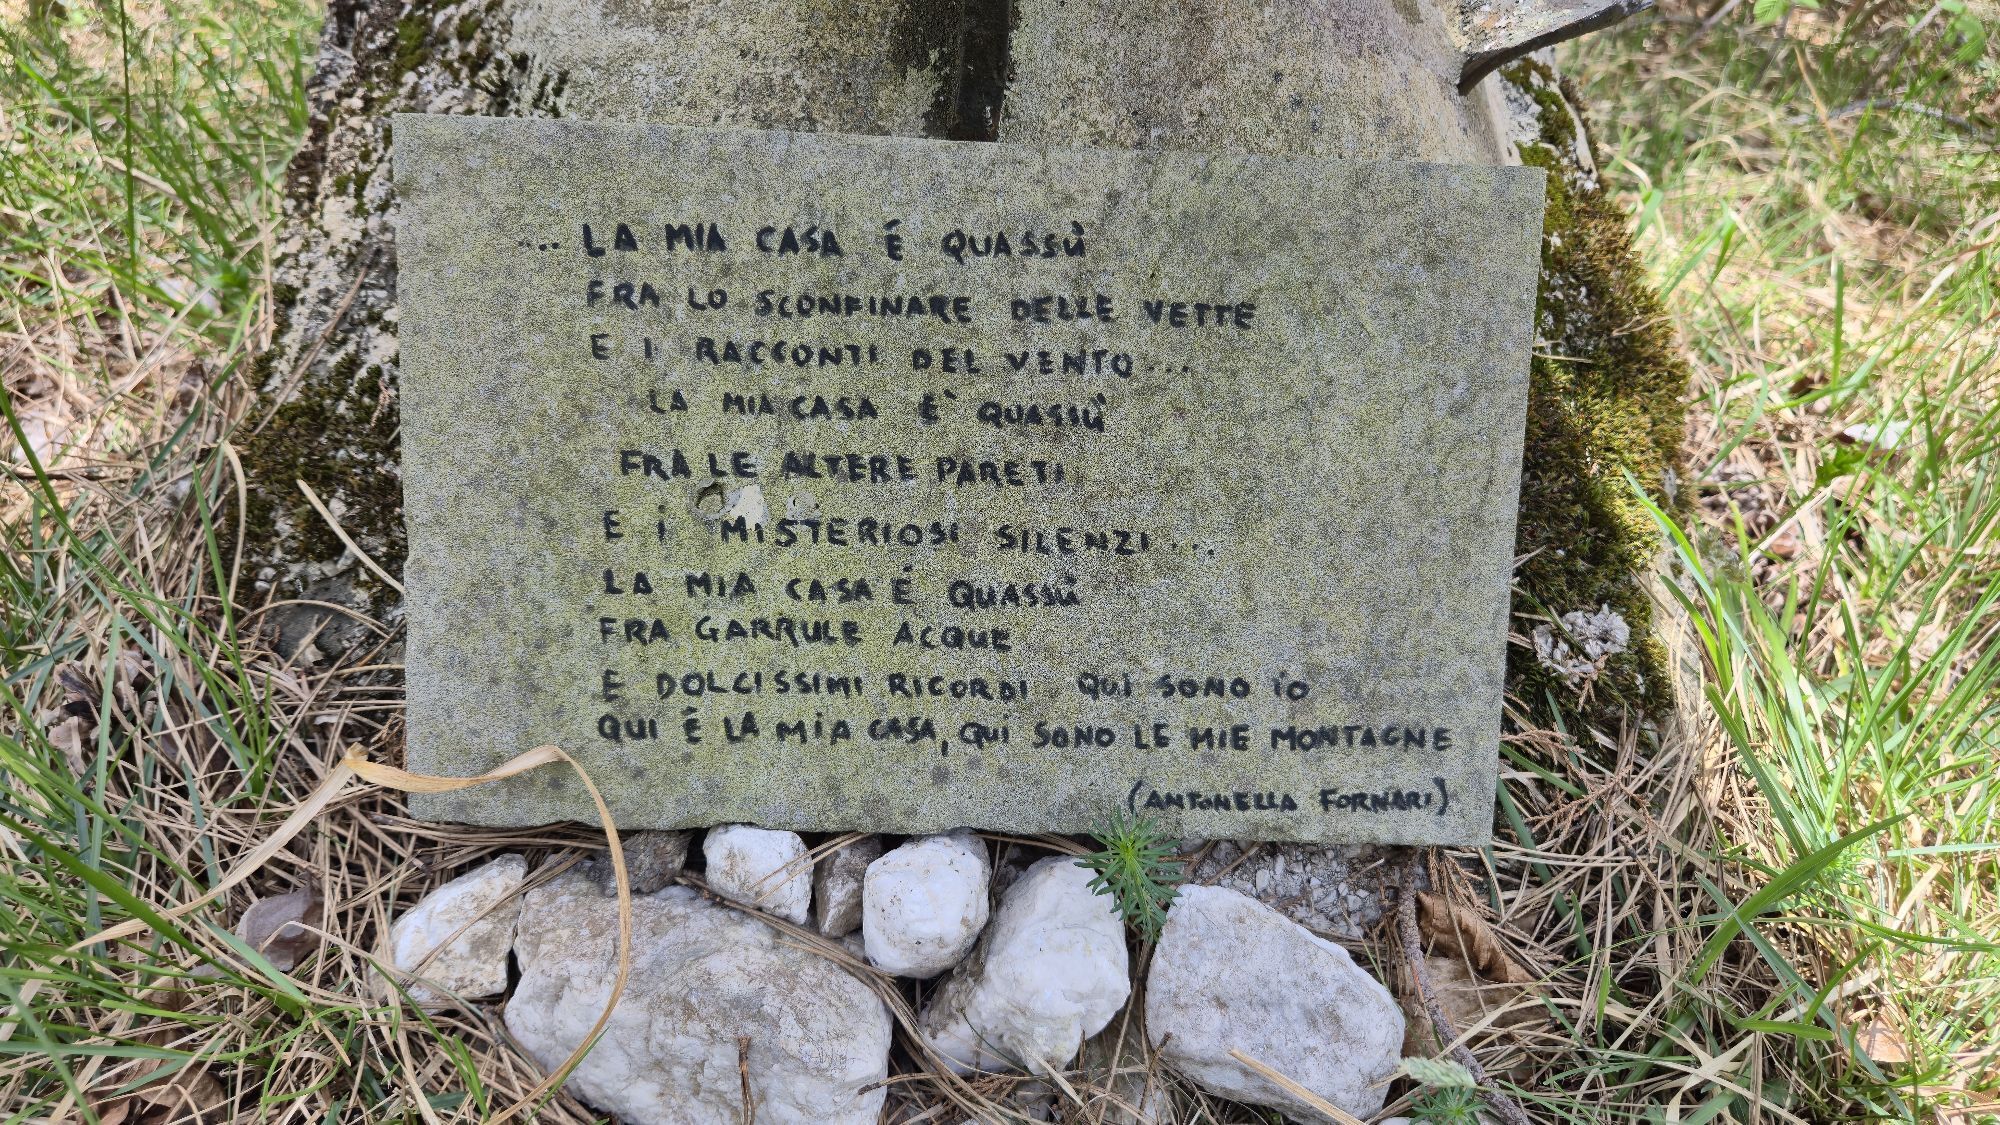 ... LA MIA CASA É QUASSÙ
FRA LO SCONFINARE DELLE VETTE
E I RACCONTI DEL VENTO...
LA MIA CASA E' QUASSÙ
FRA LE ALTERE PARETI
E I MISTERIOSI SILENZI...
LA MIA CASA É QUASSÙ
FRA GARRULE ACQUE
E DOLCISSIMI RICORDI QUI SONO IO
QUI É LA MIA CASA, QUI SONO LE MIE MONTAGNE
(ANTONELLA FORNARI)